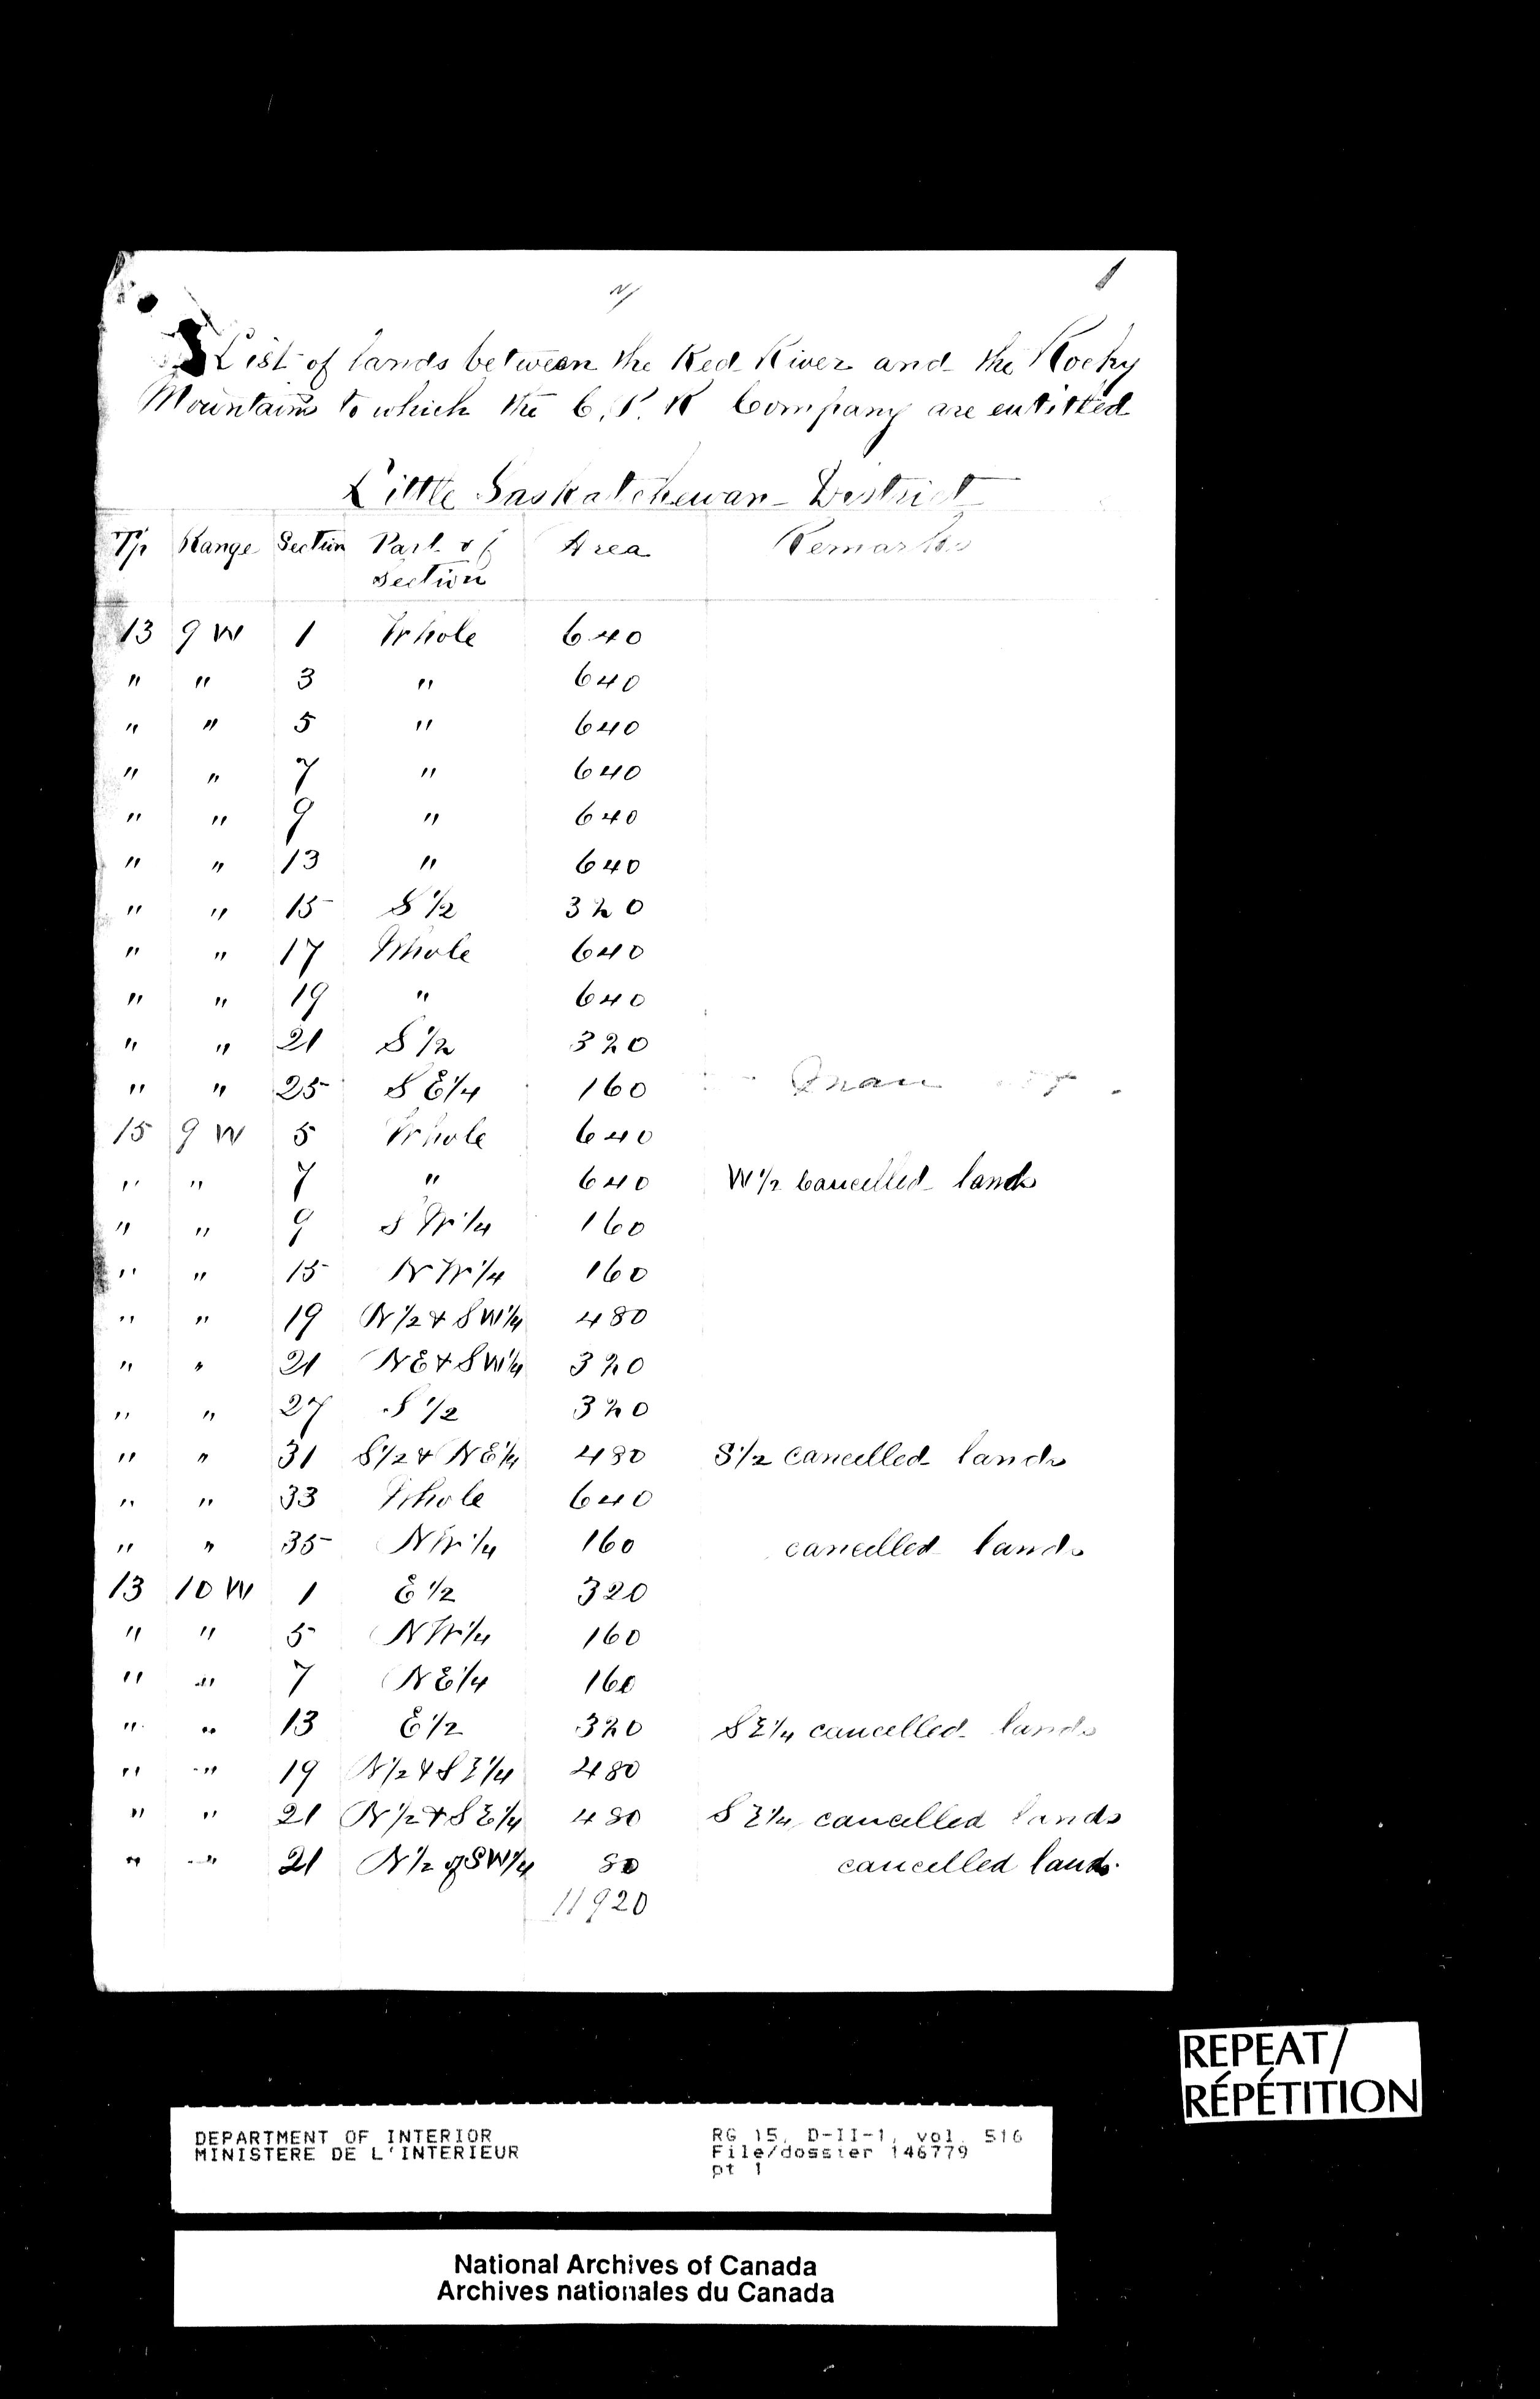 1
List of lands between the Red River and the Rocky
Mountains to which the C.P.R Company are entitled
Little Saskatchewan District
Tp Range Section Part of Section Area Remarks
13 9 W 1 Whole 640
" " 3 " 640
" " 5 " 640
" " 7 " 640
" " 9 " 640
" " 13 " 640
" " 15 S 1/2 320
" " 17 Whole 640
" " 19 " 640
" " 21 S 1/2 320
" " 25 S E 1/4 160
15 9 W 5 Whole 640
" " 7 " 640 W 1/2 Cancelled lands
" " 9 S W 1/4 160
" " 15 N W 1/4 160
" " 19 N 1/2 & S W 1/4 480
" " 21 N E & S W 1/4 320
" " 27 S 1/2 320
" " 31 S 1/2 & N E 1/4 480 S 1/2 cancelled lands
" " 33 Whole 640
" " 35 N W 1/4 160 cancelled lands
13 10 W 1 E 1/2 320
" " 5 N W 1/4 160
" " 7 N E 1/4 160
" " 13 E 1/2 320 S E 1/4 cancelled lands
" " 19 N 1/2 & S E 1/4 480
" " 21 N 1/2 & S E 1/4 480 S E 1/4 cancelled lands
" " 21 N 1/2 of S W 1/4 80 cancelled lands
11920
REPEAT/
RÉPÉTITION
DEPARTMENT OF INTERIOR RG 15, D-II-1, vol. 516
MINISTERE DE L'INTERIEUR File/dossier 146779
pt 1
National Archives of Canada
Archives nationales du Canada